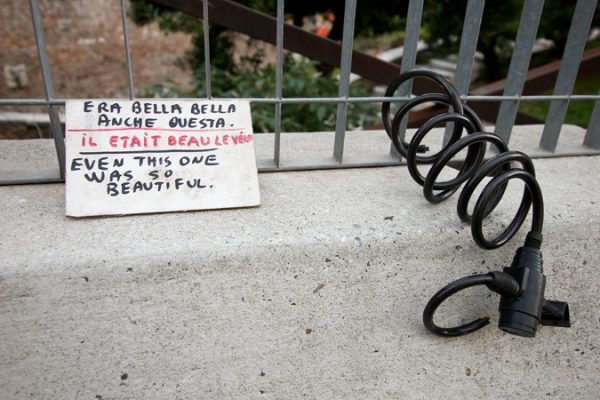 ERA BELLA BELLA
ANCHE QUESTA.
iL ETAIT BEAU LE VÉLO
EVEN THIS ONE
WAS SO
BEAUTIFUL.